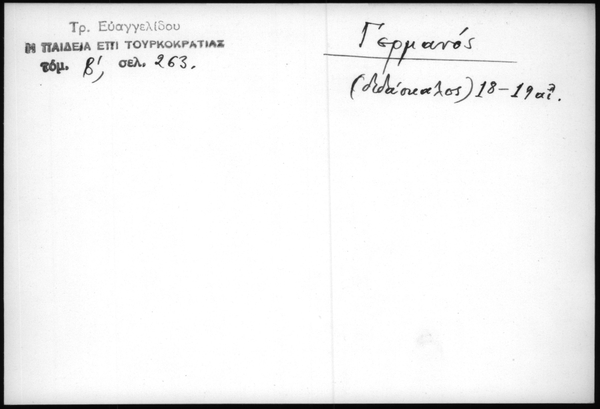 Τρ. Εὐαγγελίδου
Η ΠΑΙΔΕΙΑ ΕΠΙ ΤΟΥΡΚΟΚΡΑΤΙΑΣ
τόμ. β', σελ. 263.
Γερμανός
(διδάσκαλος) 18-19 αἰ.